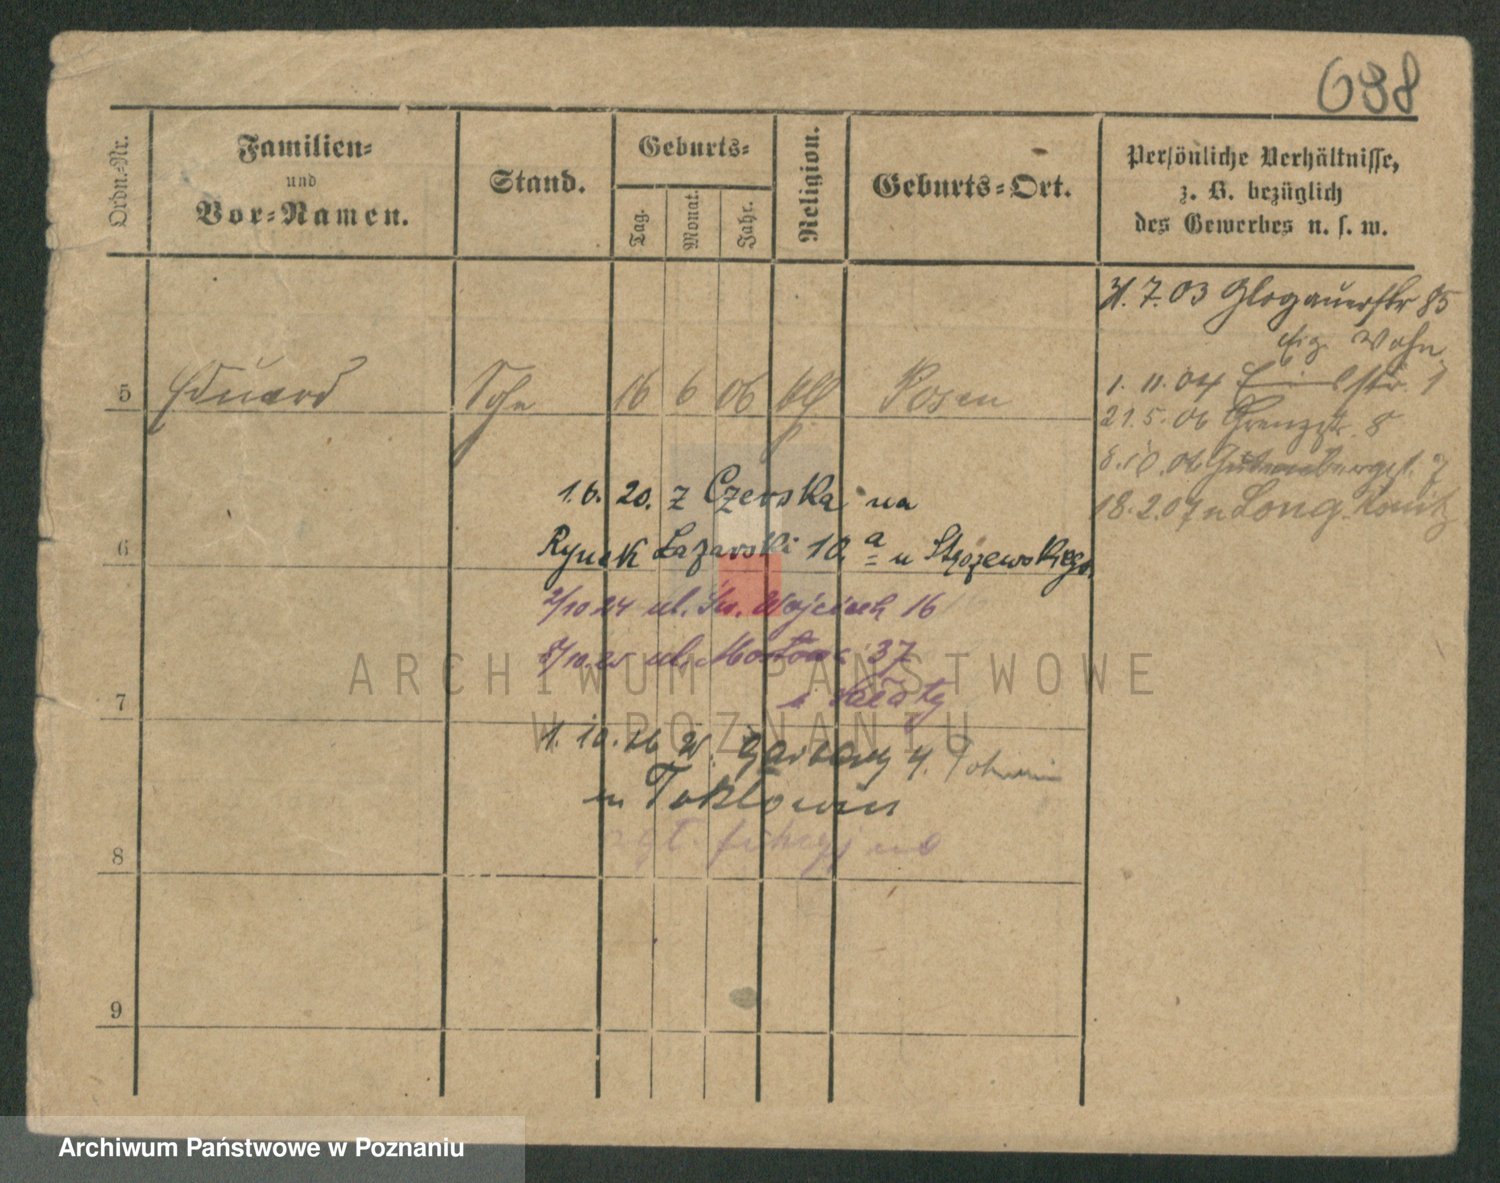 688
Ordn.-Nr.
Familien-
und
Vor-Namen.
Stand.
Geburts-
Tag.
Monat.
Jahr.
Religion.
Geburts-Ort.
Persönliche Verhältnisse,
z. B. bezüglich
des Gewerbes u. s. w.
31. 7. 03 Glogauerstr 85
eig. Wohn.
5 Eduard Sohn 16 6 06 kth Posen
1. 11. 04 str. 7
21. 5. 06 Grenzstr. 8
8. 10. 06 Gutenbergst. 7
18. 2. 07 n Long
1.6. 20. z Czerska na
6
Rynek Łazarski 10.a u
2/10 24 ul. Św. Wojciech 16
8/10. 25 ul. 37
i
7
1. 10. 26 W. Garbary 4.
u
8
9
ARCHIWUM PAŃSTWOWE
W POZNANIU
Archiwum Państwowe w Poznaniu